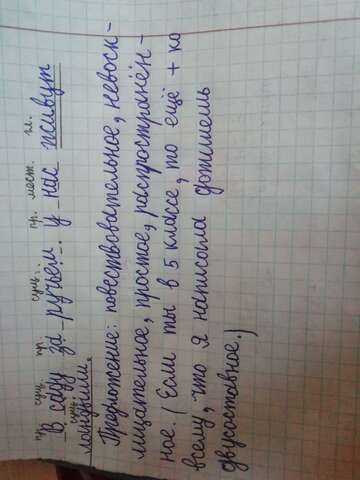 пр. сущ. пр. сущ. пр. мест. гл.
В саду за ручьем у нас живут
сущ.
ландыши.
Предложение: повествовательное, невоск-
лицательное, простое, распространён-
ное. (Если ты в 5 классе, то ещё + ко
всему, что я написала допишешь
двусоставное.)